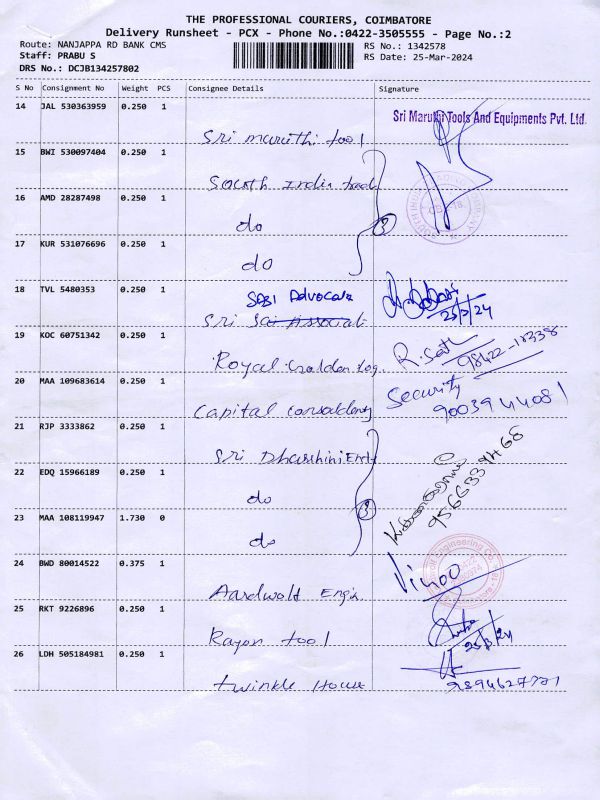 THE PROFESSIONAL COURIERS, COIMBATORE
Delivery Runsheet - PCX - Phone No.:0422-3505555 - Page No.:2
Route: NANJAPPA RD BANK CMS
RS No.: 1342578
Staff: PRABU S
RS Date: 25-Mar-2024
DRS No.: DCJB134257802
S No Consignment No Weight PCS Consignee Details Signature
14 JAL 530363959 0.250 1
Sri Maruthi Tools And Equipments Pvt. Ltd.
Sri maruthi tool
15 BWI 530097404 0.250 1
South India
16 AMD 28287498 0.250 1
do
3
17 KUR 531076696 0.250 1
do
18 TVL 5480353 0.250 1
SABI Advocate
25/3/24
Sri
19 KOC 60751342 0.250 1
R. Sat
Royal Golden log.
20 MAA 109683614 0.250 1
Security
9003944081
Capital
21 RJP 3333862 0.250 1
Sri Dharshini Ent
22 EDQ 15966189 0.250 1
do
3
23 MAA 108119947 1.730 0
do
24 BWD 80014522 0.375 1
Vinoo
Aardwolf Engr.
25 RKT 9226896 0.250 1
25/3/24
Rayon tool
26 LDH 505184981 0.250 1
9894627721
twinkle House